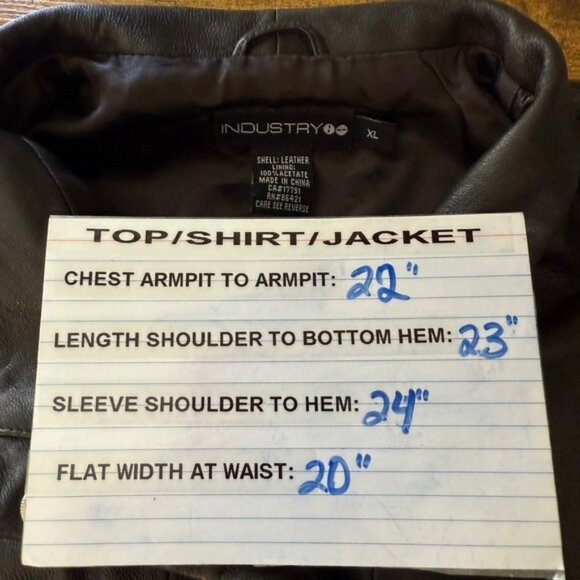 INDUSTRY
XL
SHELL: LEATHER
LINING:
100% ACETATE
MADE IN CHINA
CA#17791
RN#86421
CARE SEE REVERSE
TOP/SHIRT/JACKET
CHEST ARMPIT TO ARMPIT: 22"
LENGTH SHOULDER TO BOTTOM HEM: 23"
SLEEVE SHOULDER TO HEM: 24"
FLAT WIDTH AT WAIST: 20"